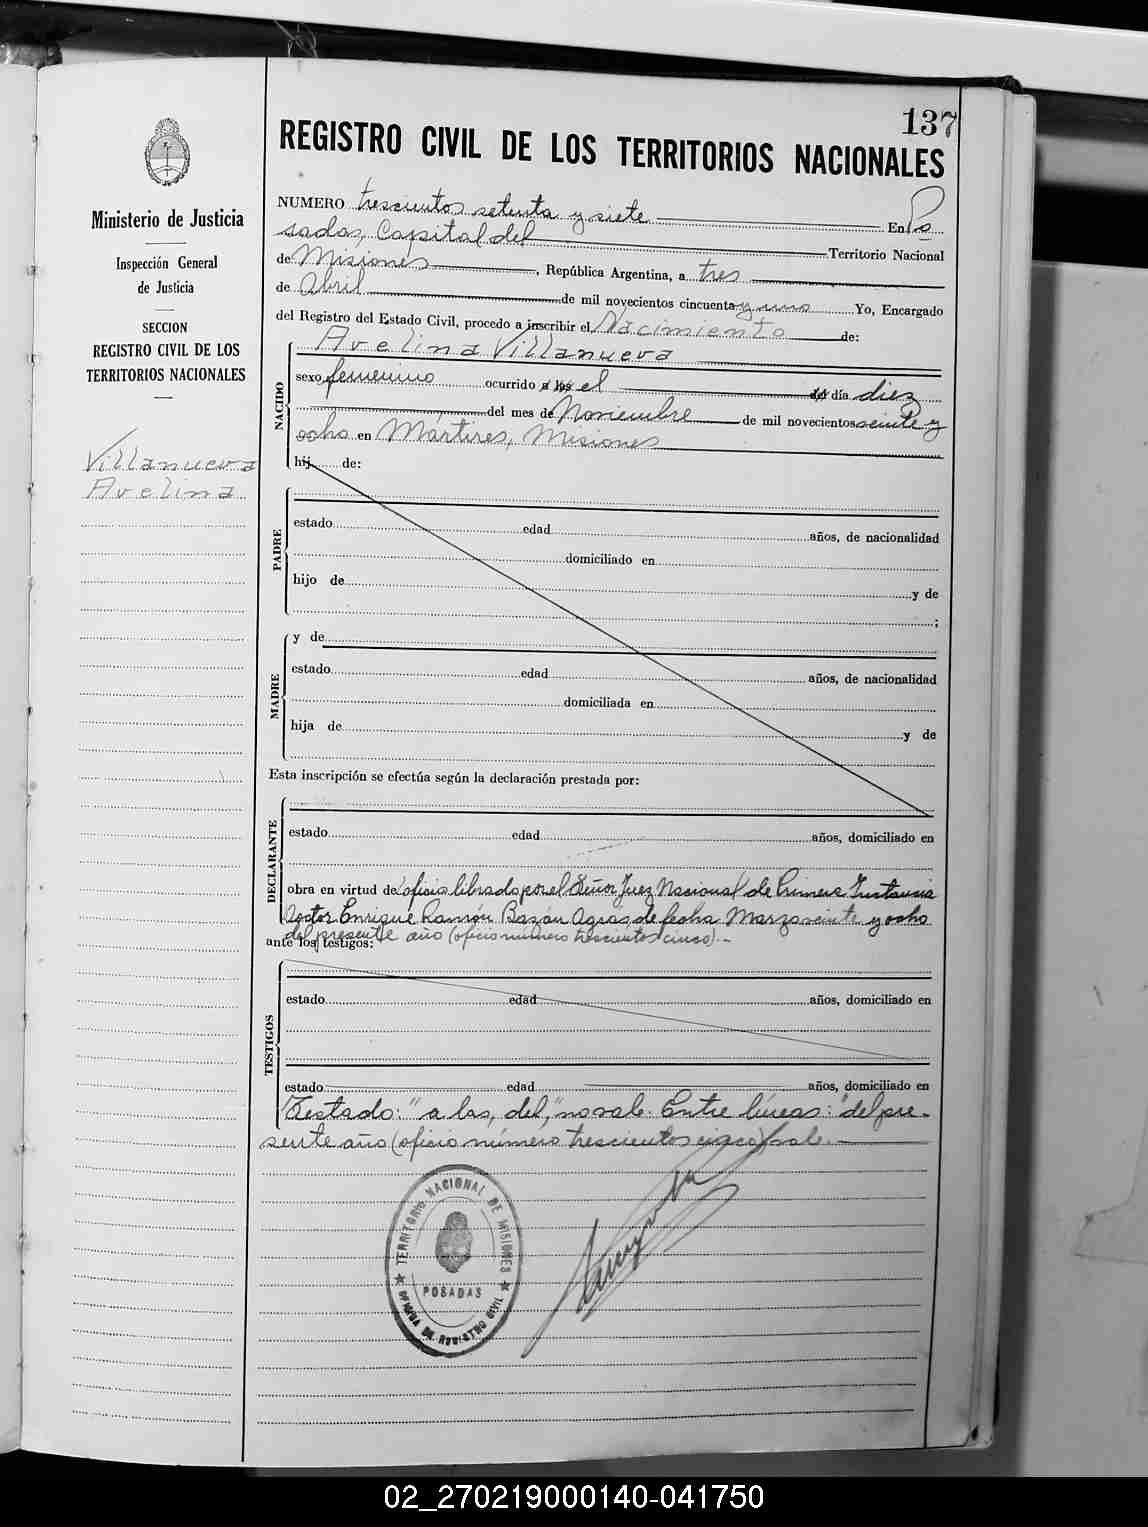 137
REGISTRO CIVIL DE LOS TERRITORIOS NACIONALES
Ministerio de Justicia
Inspección General
de Justicia
SECCION
REGISTRO CIVIL DE LOS
TERRITORIOS NACIONALES
Villanueva
Avelina
NUMERO trescientos setenta y siete En Po
sadas, Capital del Territorio Nacional
de Misiones, República Argentina, a tres
de Abril de mil novecientos cincuenta y uno Yo, Encargado
del Registro del Estado Civil, procedo a inscribir el Nacimiento de:
Avelina Villanueva
NACIDO
sexo femenino ocurrido a las el del día diez
del mes de Noviembre de mil novecientos veinte y
ocho en Mártires, Misiones
hij de:
PADRE
estado edad años, de nacionalidad
domiciliado en
hijo de y de
;
MADRE
y de
estado edad años, de nacionalidad
domiciliada en
hija de y de
Esta inscripción se efectúa según la declaración prestada por:
DECLARANTE
estado edad años, domiciliado en
obra en virtud de oficio librado por el Señor Juez Nacional de Primera Instancia
Doctor Enrique Ramón Bazán Agrás de fecha Marzo veinte y ocho
del presente año (oficio número trescientos cinco).-
ante los testigos:
TESTIGOS
estado edad años, domiciliado en
estado edad años, domiciliado en
Testado: "a las, del," no vale. Entre líneas: "del pre-
sente año (oficio número trescientos cinco) vale.
TERRITORIO NACIONAL DE MISIONES
POSADAS
OFICINA DE REGISTRO CIVIL
02_270219000140-041750